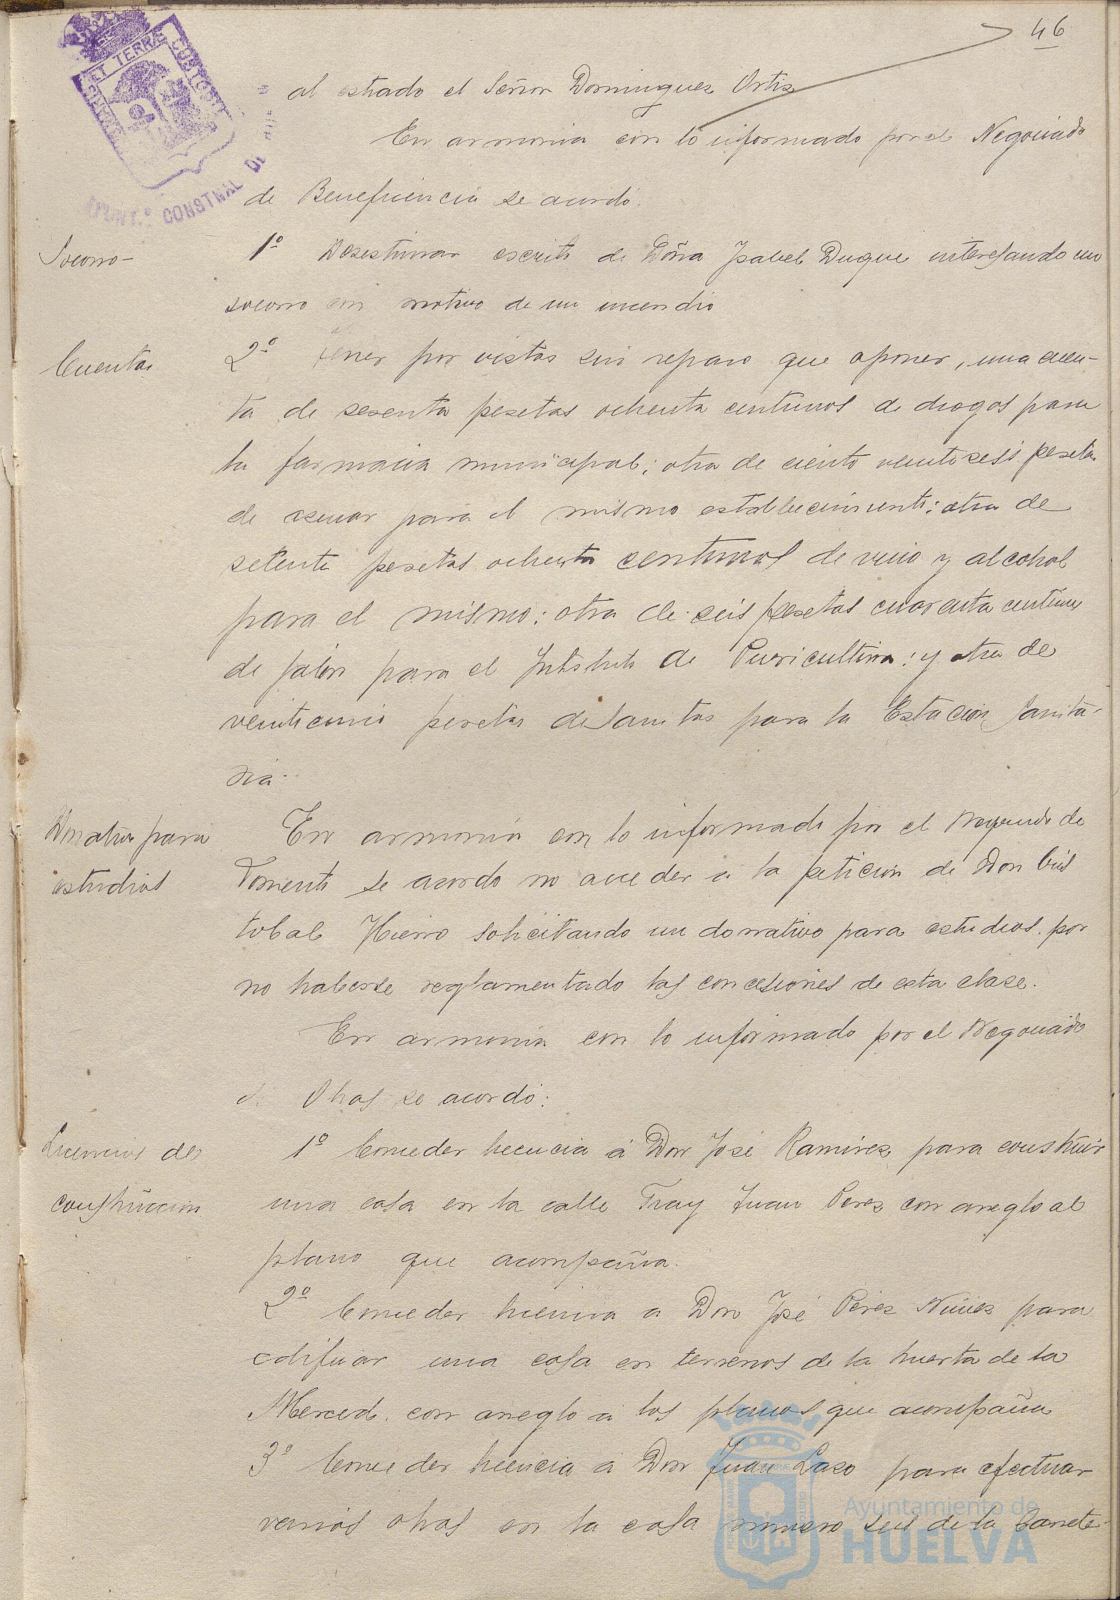 46
al estrado el Señor Dominguez Ortiz
En armonia con lo informado por el Negociado
de Beneficencia se acordó.
Socorro-
1º Desestimar escrito de Doña Isabel Duque interesando un
socorro con motivo de un incendio
Cuentas
2º Tener por vistas sin reparo que oponer, una cuen-
ta de sesenta pesetas ochenta centimos de drogas para
la farmacia municipal; otra de ciento veintiseis pesetas
de azucar para el mismo establecimiento; otra de
setenta pesetas ochenta centimos de vino y alcohol
para el mismo; otra de seis pesetas cuarenta centimos
de jabon para el Instituto de Puericultura; y otra de
veinticinco pesetas de Sanitas para la Estacion Sanita-
ria.
Donativo para
estudios
En armonia con lo informado por el Negociado de
Fomento se acordó no acceder a la peticion de Don Cris
tobal Hierro solicitando un donativo para estudios por
no haberse reglamentado las concesiones de esta clase.
En armonia con lo informado por el Negociado
d. Obras se acordó:
Licencias de
construccion
1º Conceder licencia á Don José Ramirez para construir
una casa en la calle Fray Juan Perez con arreglo al
plano que acompaña.
2º Conceder licencia a Don José Pérez Núñez para
edificar una casa en terrenos de la huerta de la
Merced. con arreglo a los planos que acompaña
3º Conceder licencia á Don Juan Lazo para efectuar
varias obras en la casa numero seis de la Carrete-
AYUNT.º CONSTNAL DE
Ayuntamiento de
HUELVA